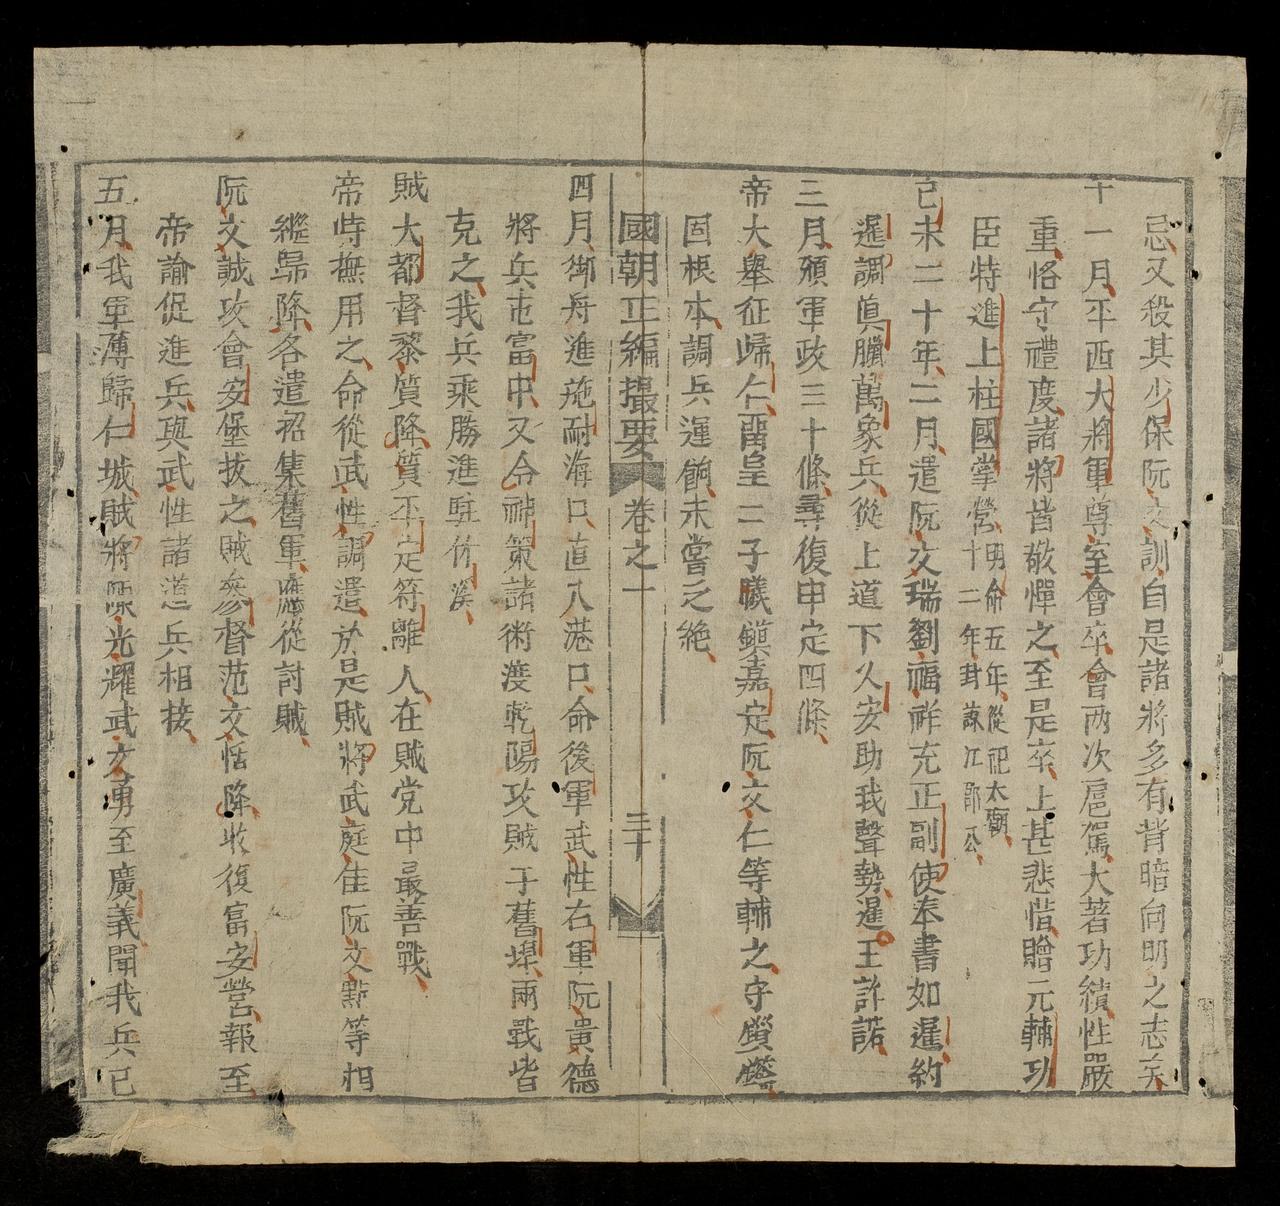 忌又殺其少保阮文訓自是諸將多有背暗向明之志矣
十一月平西大將軍尊室會卒會两次扈駕大著功績性嚴
重恪守禮度諸將皆敬憚之至是卒上甚悲惜贈元輔功
臣特進上柱國掌營明命五年從祀太廟十二年封諒江郡公
己未二十年二月遣阮文瑞劉福祥充正副使奉書如暹約
暹調眞臘萬象兵從上道下乂安助我聲勢暹王許諾
三月頒軍政三十條尋復申定四條
帝大舉征歸仁畱皇二子曦鎭嘉定阮文仁等輔之守鎖鑰
固根本調兵運餉未嘗乏絶
國朝正編撮要 卷之一 三十
四月御舟進施耐海口直入港口命後軍武性右軍阮黃德
將兵屯富中又令神策諸衛渡乾陽攻賊于舊堤兩戰皆
克之我兵乘勝進駐竹溪
賊大都督黎質降質平定符離人在賊党中最善戰
帝特撫用之命從武性調遣於是賊將武庭隹阮文㸃等相
繼歸降各遣招集舊軍應從討賊
阮文誠攻會安堡拔之賊參督范文恬降收復富安營報至
帝諭促進兵與武性諸道兵相接
五月我軍薄歸仁城賊將陳光耀武文勇至廣義聞我兵已